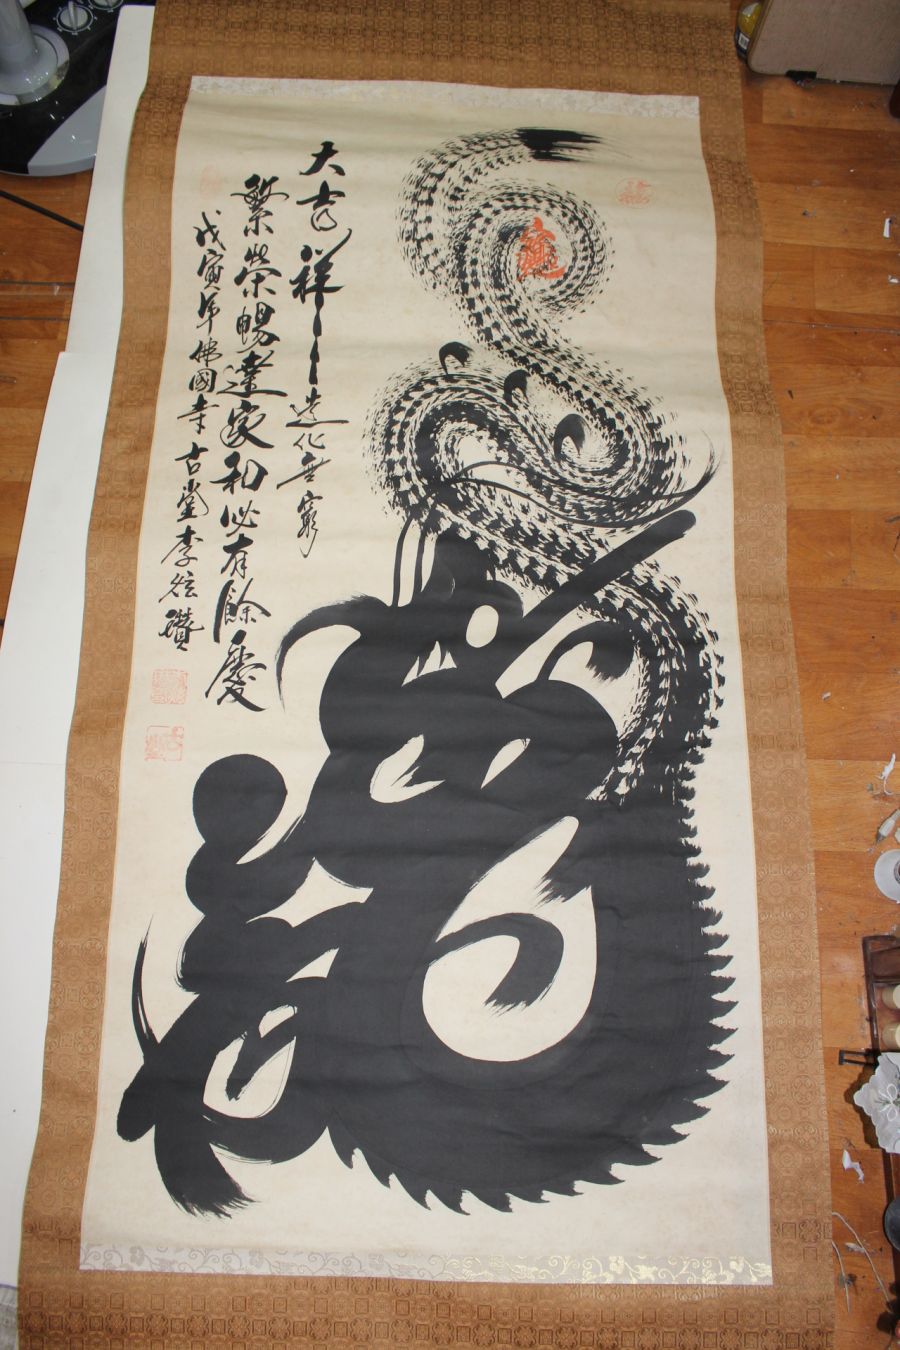 龍
大吉祥 造化無窮
繁榮暢達家和必有餘慶
戊寅年佛國寺古堂李